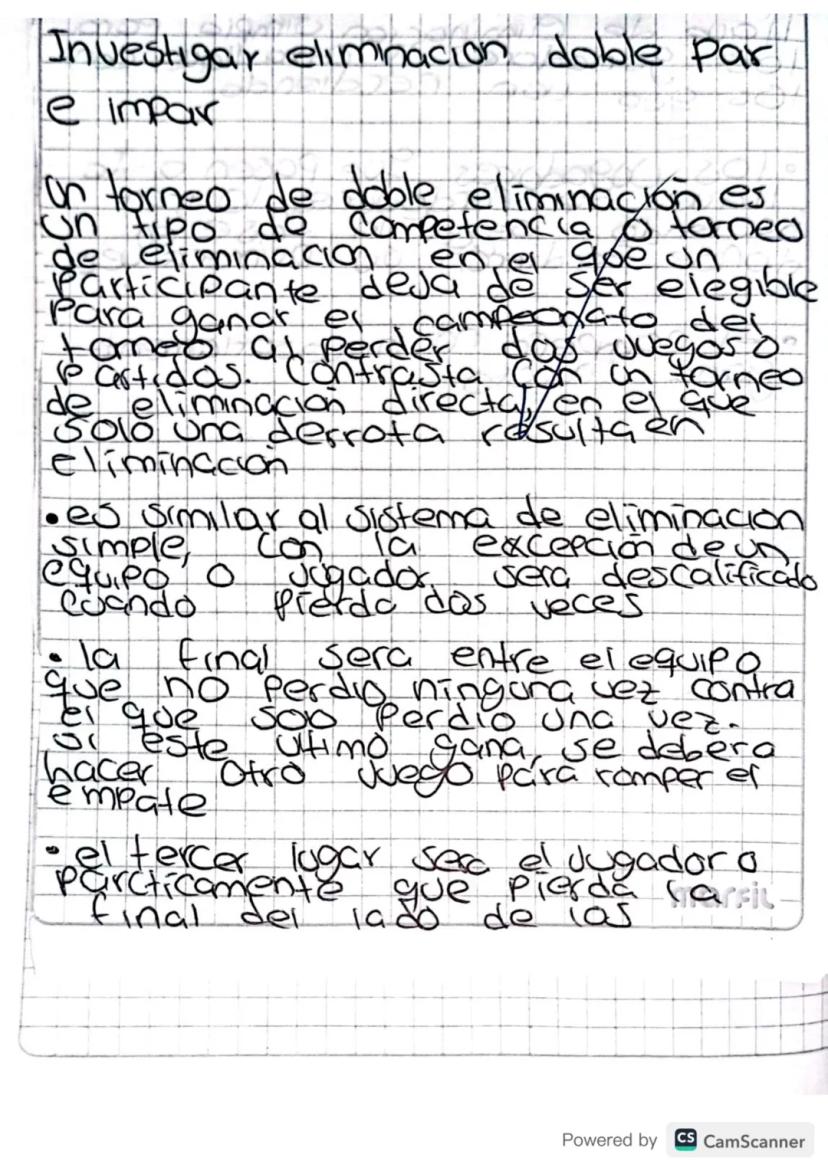 Investigar eliminacion doble par
e impar
Un torneo de doble eliminación es
un tipo de competencia o torneo
de eliminacion en el que un
participante deja de ser elegible
para ganar el campeonato del
torneo al perder dos juegos o
partidos. Contrasta con un torneo
de eliminación directa, en el que
solo una derrota resulta en
eliminacion
• es similar al sistema de eliminacion
simple, con la excepción de un
equipo o jugador sera descalificado
cuando pierda dos veces
• la final sera entre el equipo
que no perdio ninguna vez contra
el que solo perdio una vez.
si este ultimo gana, se debera
hacer otro juego para romper el
empate
• el tercer lugar sera el jugador o
parcticamente que pierda la
final del lado de los
marfil
Powered by CS CamScanner